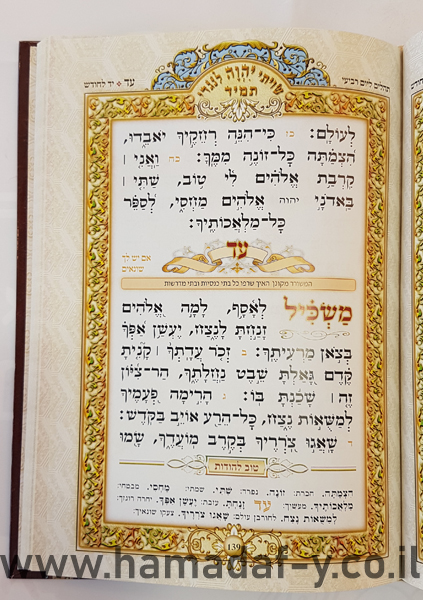 תהלים ליום רביעי
שויתי יהוה לנגדי
תמיד
עד ❖ יד לחודש
לְעוֹלָם: כז כִּי־הִנֵּה רְחֵקֶיךָ יֹאבֵדוּ,
הִצְמַתָּה כָּל־זוֹנֶה מִמֶּךָּ: כח וַאֲנִי ׀
קִרֲבַת אֱלֹהִים לִי טוֹב, שַׁתִּי ׀
בַּאדֹנָי יהוה אֱלֹהִים מַחְסִי, לְסַפֵּר
כָּל־מַלְאֲכוֹתֶיךָ:
עד
אם יש לך
שונאים
המשורר מקונן האיך שרפו כל בתי כנסיות ובתי מדרשות
מַשְׂכִּיל לְאָסָף, לָמָה אֱלֹהִים
זָנַחְתָּ לָנֶצַח, יֶעְשַׁן אַפְּךָ
בְּצֹאן מַרְעִיתֶךָ: ב זְכֹר עֲדָתְךָ ׀ קָנִיתָ
קֶּדֶם גָּאַלְתָּ שֵׁבֶט נַחֲלָתֶךָ, הַר־צִיּוֹן
זֶה ׀ שָׁכַנְתָּ בּוֹ: ג הָרִימָה פְעָמֶיךָ
לְמַשֻּׁאוֹת נֶצַח, כָּל־הֵרַע אוֹיֵב בַּקֹּדֶשׁ:
ד שָׁאֲגוּ צֹרְרֶיךָ בְּקֶרֶב מוֹעֲדֶךָ, שָׂמוּ
טוב להודות
הִצְמַתָּה. חברת: זוֹנֶה. נפרד: שַׁתִּי. שמתי: מַחְסִי. מבטחי:
מַלְאֲכוֹתֶיךָ. מעשיך: עד זָנַחְתָּ. עזבת: יֶעְשַׁן אַפְּךָ. יחרה רוגזך:
לְמַשֻּׁאוֹת נֶצַח. לחורבן עולם: שָׁאֲגוּ צֹרְרֶיךָ. צעקו שונאיך:
139
www.hamadaf-y.co.il